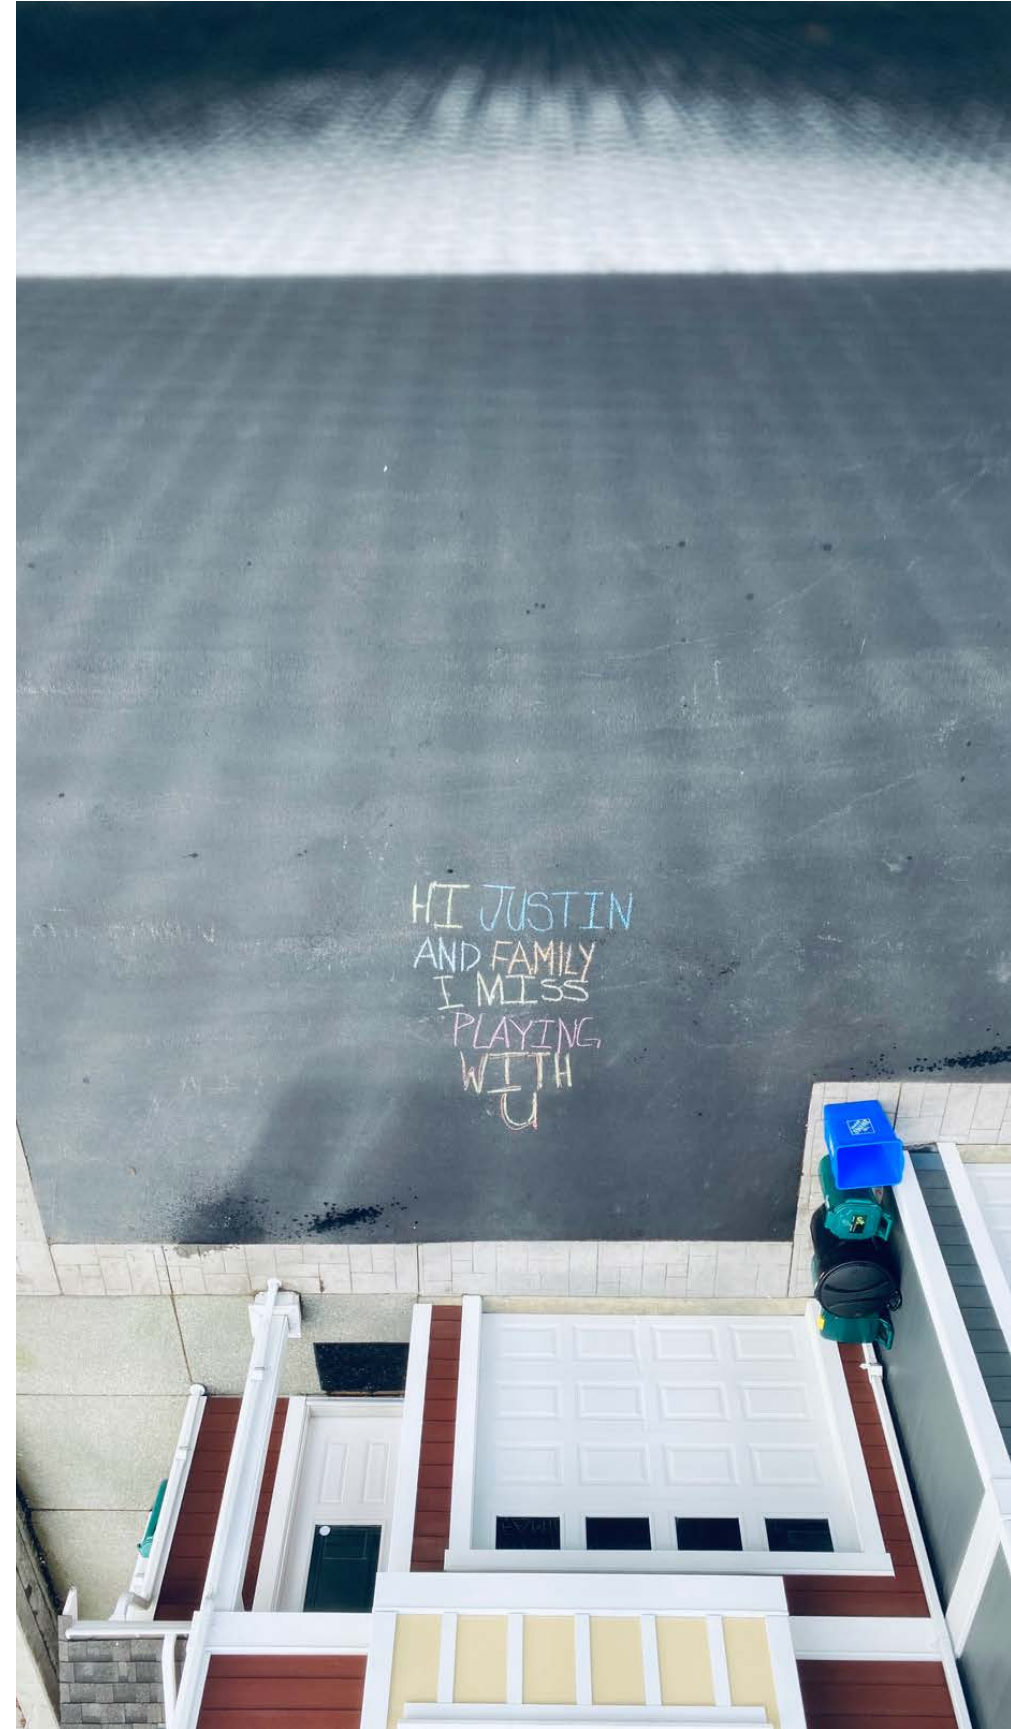 HI JUSTIN
AND FAMILY
I MISS
PLAYING
WITH
U